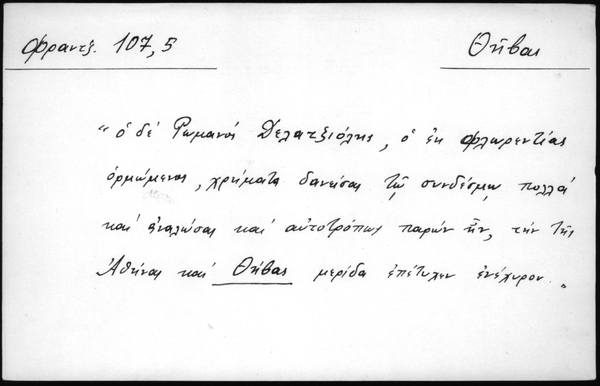 Φραντζ. 107,5
Θῆβαι
"ὁ δέ Ρωμανός Δελατζιόλης, ὁ ἐκ Φλωρεντίας
ὁρμώμενος, χρήματα δανείσας τῷ συνδέσμῳ πολλά
καί ἀναλώσας καί αὐτοτρόπως παρών ἦν, τήν τῆς
Ἀθήνας καί Θήβας μερίδα ἐπέτυχεν ἐνέχυρον.„